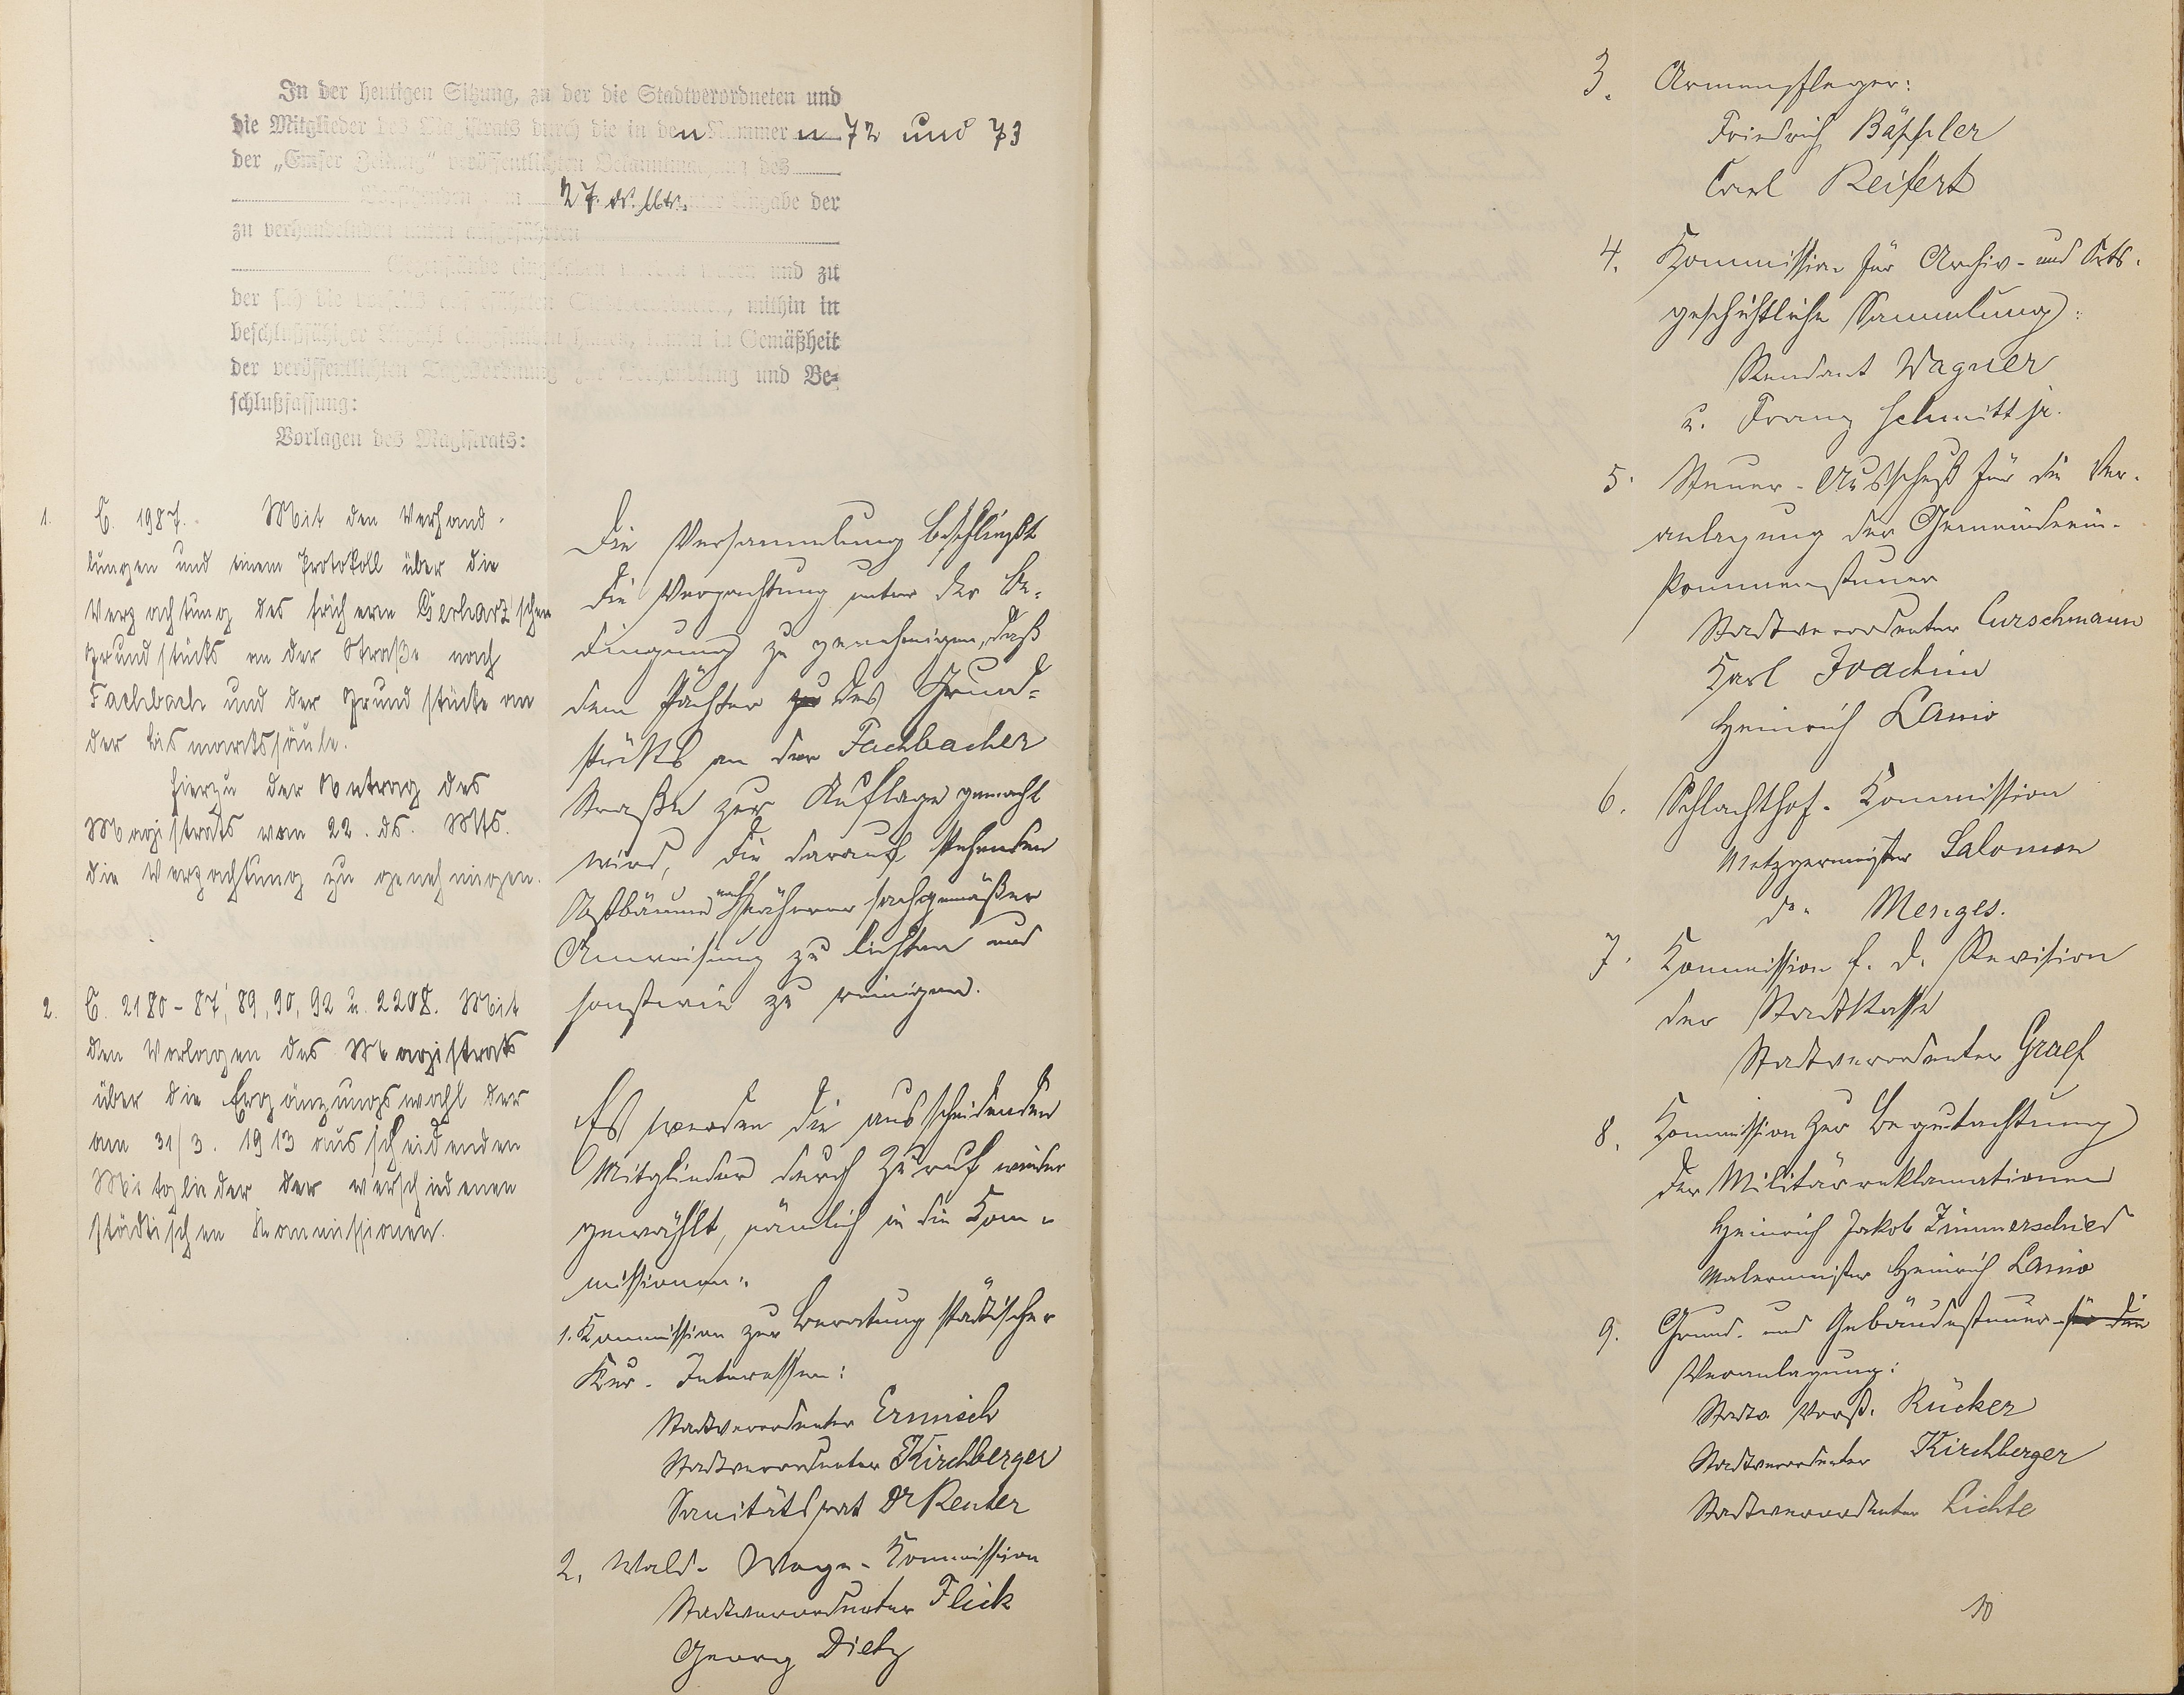 In der heutigen Sitzung, zu der die Stadtverordneten und
die Mitglieder des Magistrats durch die in den Nummern 72 und 73
der „Emser Zeitung“ veröffentlichten Bekanntmachung des
Vorsitzenden vom 27. ds. Mts. unter Angabe der
zu verhandelnden unten aufgeführten
Gegenstände eingeladen worden waren und zu
der sich die vorseits aufgeführten Stadtverordneten, mithin in
beschlußfähiger Anzahl eingefunden hatten, kamen in Gemäßheit
der veröffentlichten Tagesordnung zur Verhandlung und Be-
schlußfassung:
Vorlagen des Magistrats:
1. C. 1987. Mit den Verhand-
lungen und einem Protokoll über die
Verpachtung des früheren Gerharz'schen
Grundstücks an der Straße nach
Fachbach und der Grundstücke an
der Bismarcksäule.
Hierzu der Antrag des
Magistrats vom 22. ds. Mts.
die Verpachtung zu genehmigen.
Die Versammlung beschließt
die Verpachtung unter der Be-
dingung zu genehmigen, daß
dem Pächter zu des Grund-
stücks an der Fachbacher
Straße zur Auflage gemacht
wird, die darauf stehenden
Obstbäume nach näherer sachgemäßer
Anweisung zu lichten und
sonstwie zu reinigen.
2. C. 2180-87, 89, 90, 92 u. 2208. Mit
den Vorlagen des Magistrats
über die Ergänzungswahl der
am 31/3. 1913 ausscheidenden
Mitglieder der verschiedenen
städtischen Kommissionen.
Es werden die ausscheidenden
Mitglieder durch Zuruf wieder
gewählt, nämlich in die Kom-
missionen:
1. Kommission zur Beratung städtischer
Kur-Interessen:
Stadtverordneter Ermisch
Stadtverordneter Kirchberger
Sanitätsrat Dr Reuter
2. Wald-Wege-Kommission
Stadtverordneter Flick
Georg Dietz
3. Armenpfleger:
Friedrich Bäppler
Carl Reifert
4. Kommission für Archiv- und Orts-
geschichtliche Sammlung:
Rendant Wagner
u. Franz Schmitt jr.
5. Steuer-Ausschuß für die Ver-
anlagung der Gemeindeein-
kommensteuer
Stadtverordneter Curschmann
Karl Joachim
Heinrich Lanio
6. Schlachthof-Kommission
Metzgermeister Salomon
do. Menges.
7. Kommission f. d. Revision
der Stadtkasse
Stadtverordneter Graef
8. Kommission zur Begutachtung
der Militärreklamationen
Heinrich Jakob Zimmerschied
Malermeister Heinrich Lanio
9. Grund- und Gebäudesteuer- für die
Veranlagung:
Stadtv. Vorst. Rücker
Stadtverordneter Kirchberger
Stadtverordneter Lichte
10